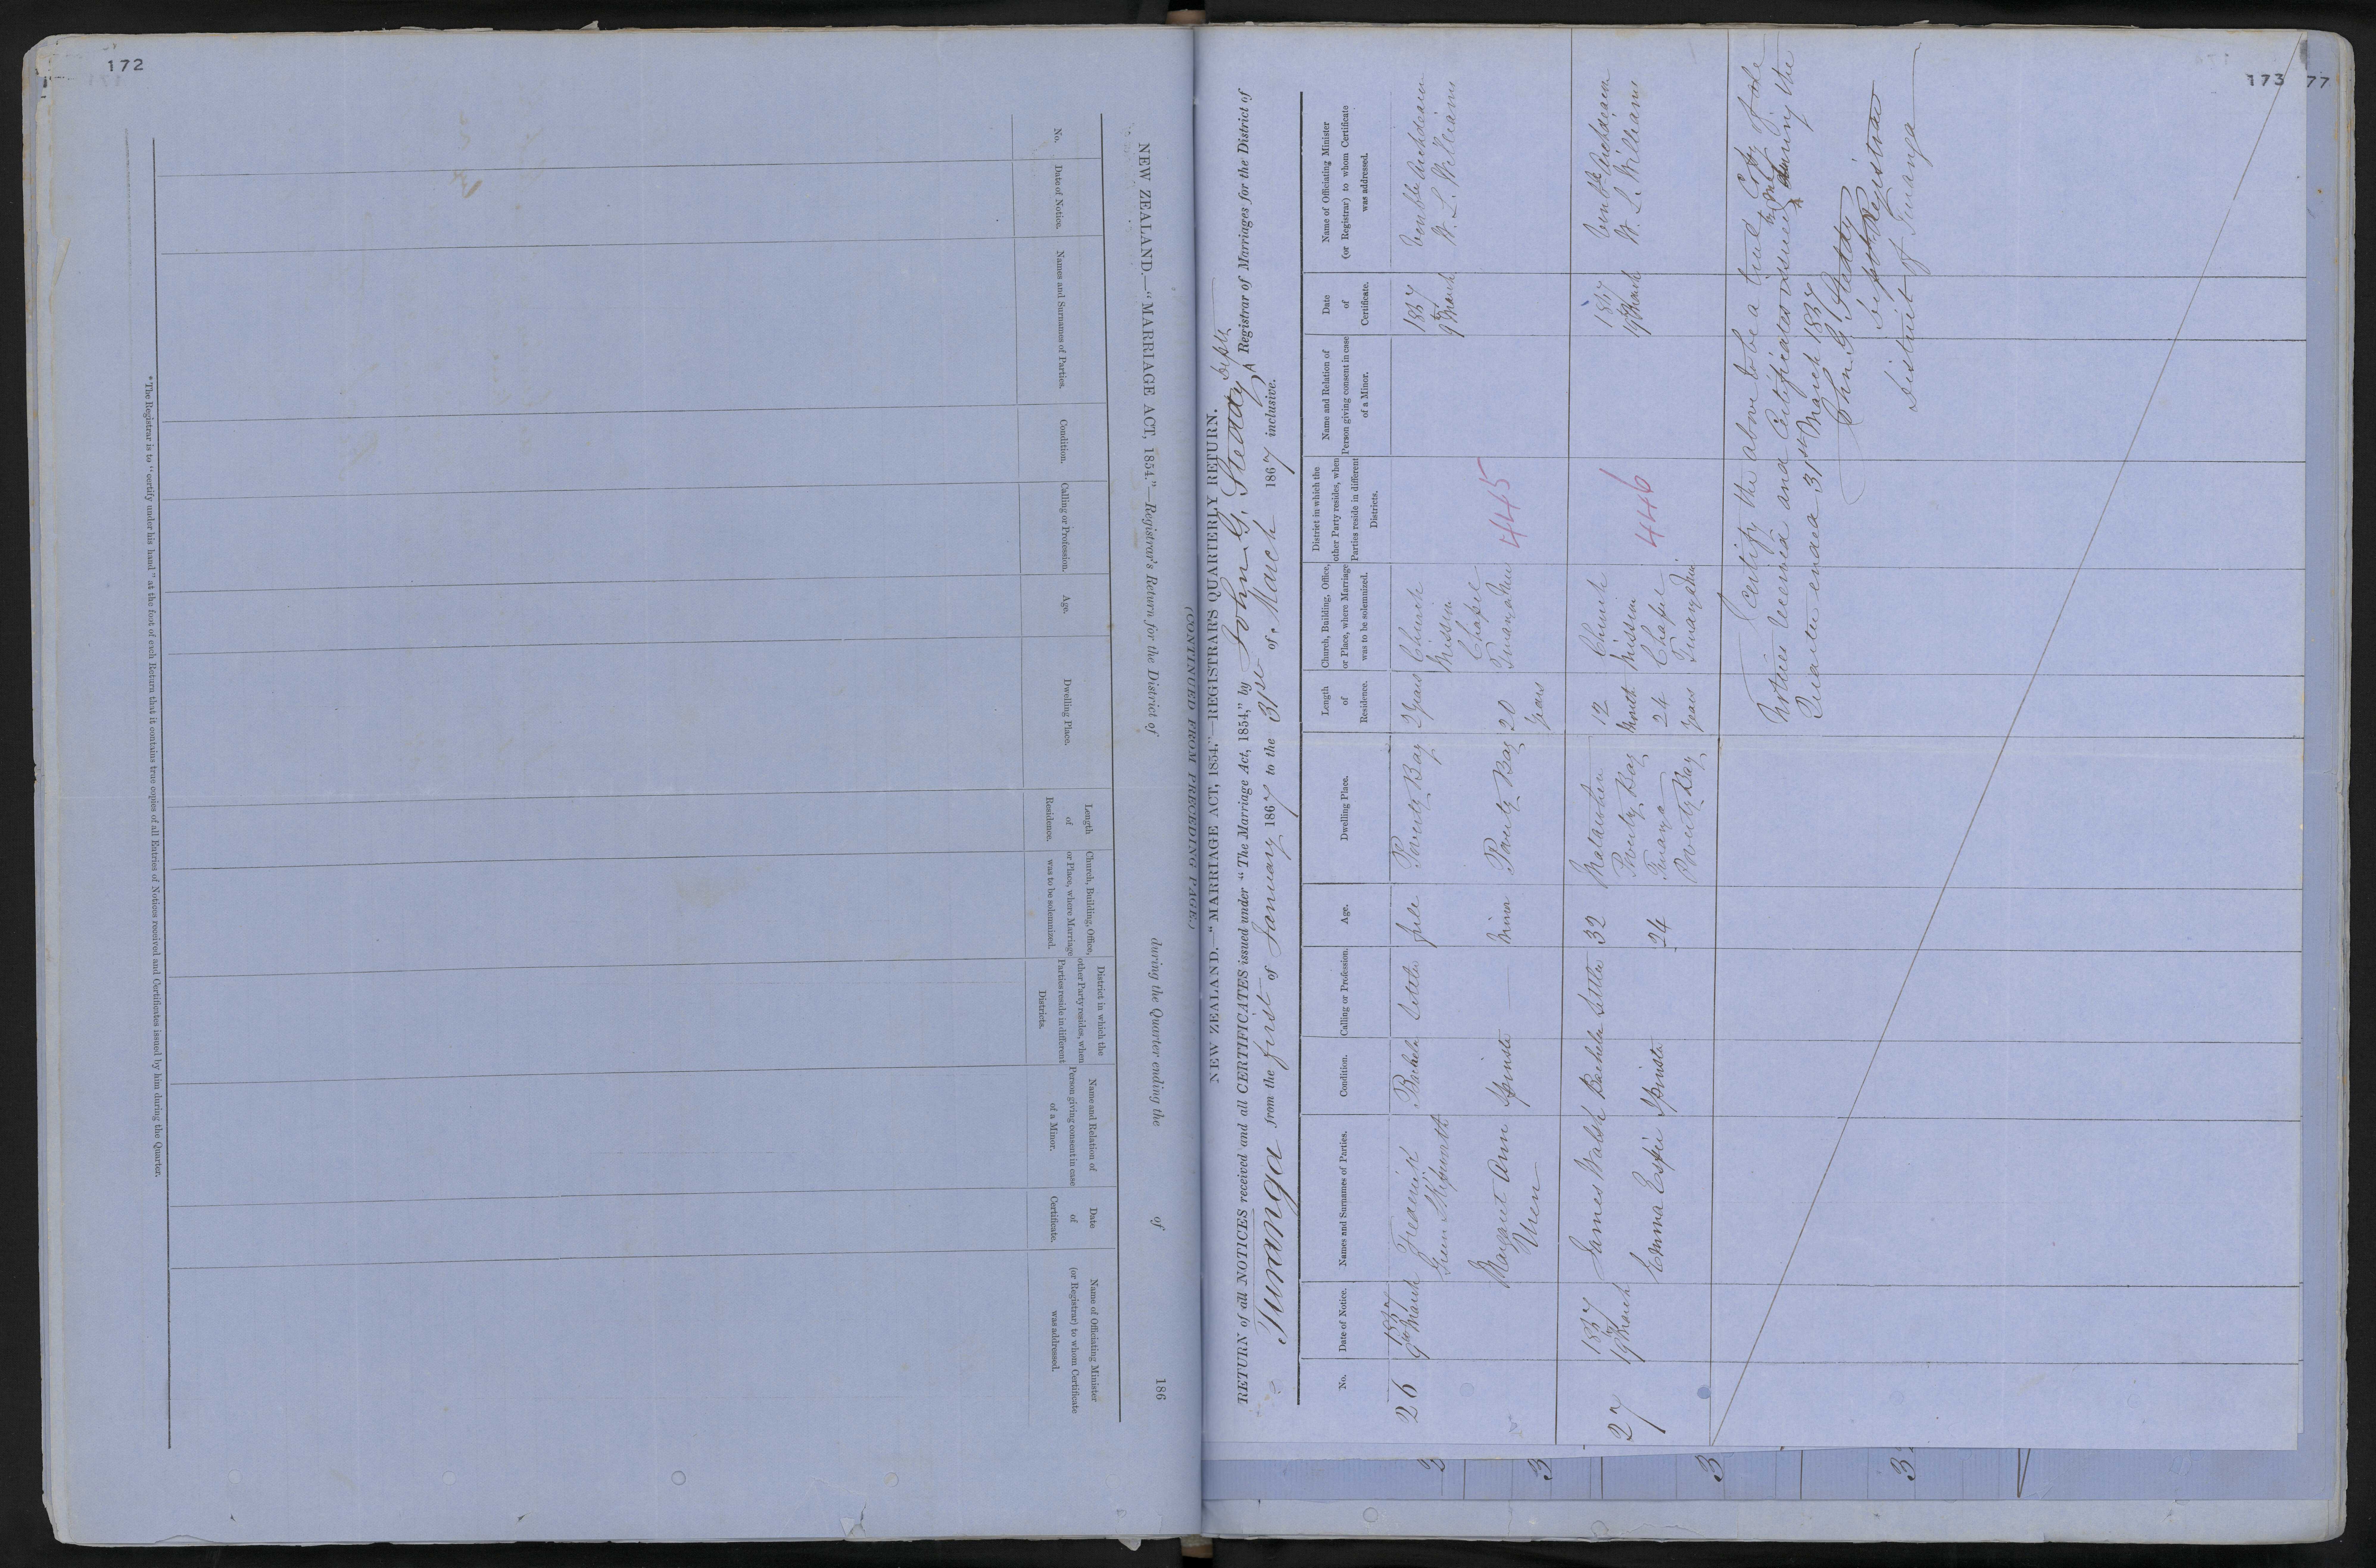 172
NEW ZEALAND.—"MARRIAGE ACT, 1854."—Registrar's Return for the District of during the Quarter ending the of 186
No.
Date of Notice.
Names and Surnames of Parties.
Condition.
Calling or Profession.
Age.
Dwelling Place.
Length
of
Residence.
Church, Building, Office,
or Place, where Marriage
was to be solemnized.
District in which the
other Party resides, when
Parties reside in different
Districts.
Name and Relation of
Person giving consent in case
of a Minor.
Date
of
Certificate.
Name of Officiating Minister
(or Registrar) to whom Certificate
was addressed.
* The Registrar is to "certify under his hand" at the foot of each Return that it contains true copies of all Entries of Notices received and Certificates issued by him during the Quarter.
(CONTINUED FROM PRECEDING PAGE.)
173
77
NEW ZEALAND.—"MARRIAGE ACT, 1854."—REGISTRAR'S QUARTERLY RETURN.
RETURN of all NOTICES received and all CERTIFICATES issued under "The Marriage Act, 1854," by John G. Steddy Depy Registrar of Marriages for the District of
Turanga from the first of January 1867 to the 31st of March 1867 inclusive.
No.
Date of Notice.
Names and Surnames of Parties.
Condition.
Calling or Profession.
Age.
Dwelling Place.
Length
of
Residence.
Church, Building, Office,
or Place, where Marriage
was to be solemnized.
District in which the
other Party resides, when
Parties reside in different
Districts.
Name and Relation of
Person giving consent in case
of a Minor.
Date
of
Certificate.
Name of Officiating Minister
(or Registrar) to whom Certificate
was addressed.
26
1867
9th March
Frederick
Green Skipworth
Bachelor
Settler
full
Poverty Bay
2 years
Church
Mission
Chapel
1867
9th March
Venble Archdeacon
W. L. Williams
Margaret Ann
Uren
Spinster
—
Minor
Poverty Bay
20
years
4445
27
1867
19th March
James Walsh
Bachelor
Settler
32
Matawhero
Poverty Bay
12
Month
Church
Mission
Chapel
1867
19th March
Venble Archdeacon
W. L. Williams
Emma Espie
Spinster
24
Turanga
Poverty Bay
24
years
4446
I certify the above to be a true Copy of the
Notices received and Certificates issued by me during the
Quarter ended 31st March 1867
John G Steddy
Depy Registrar
District of Turanga